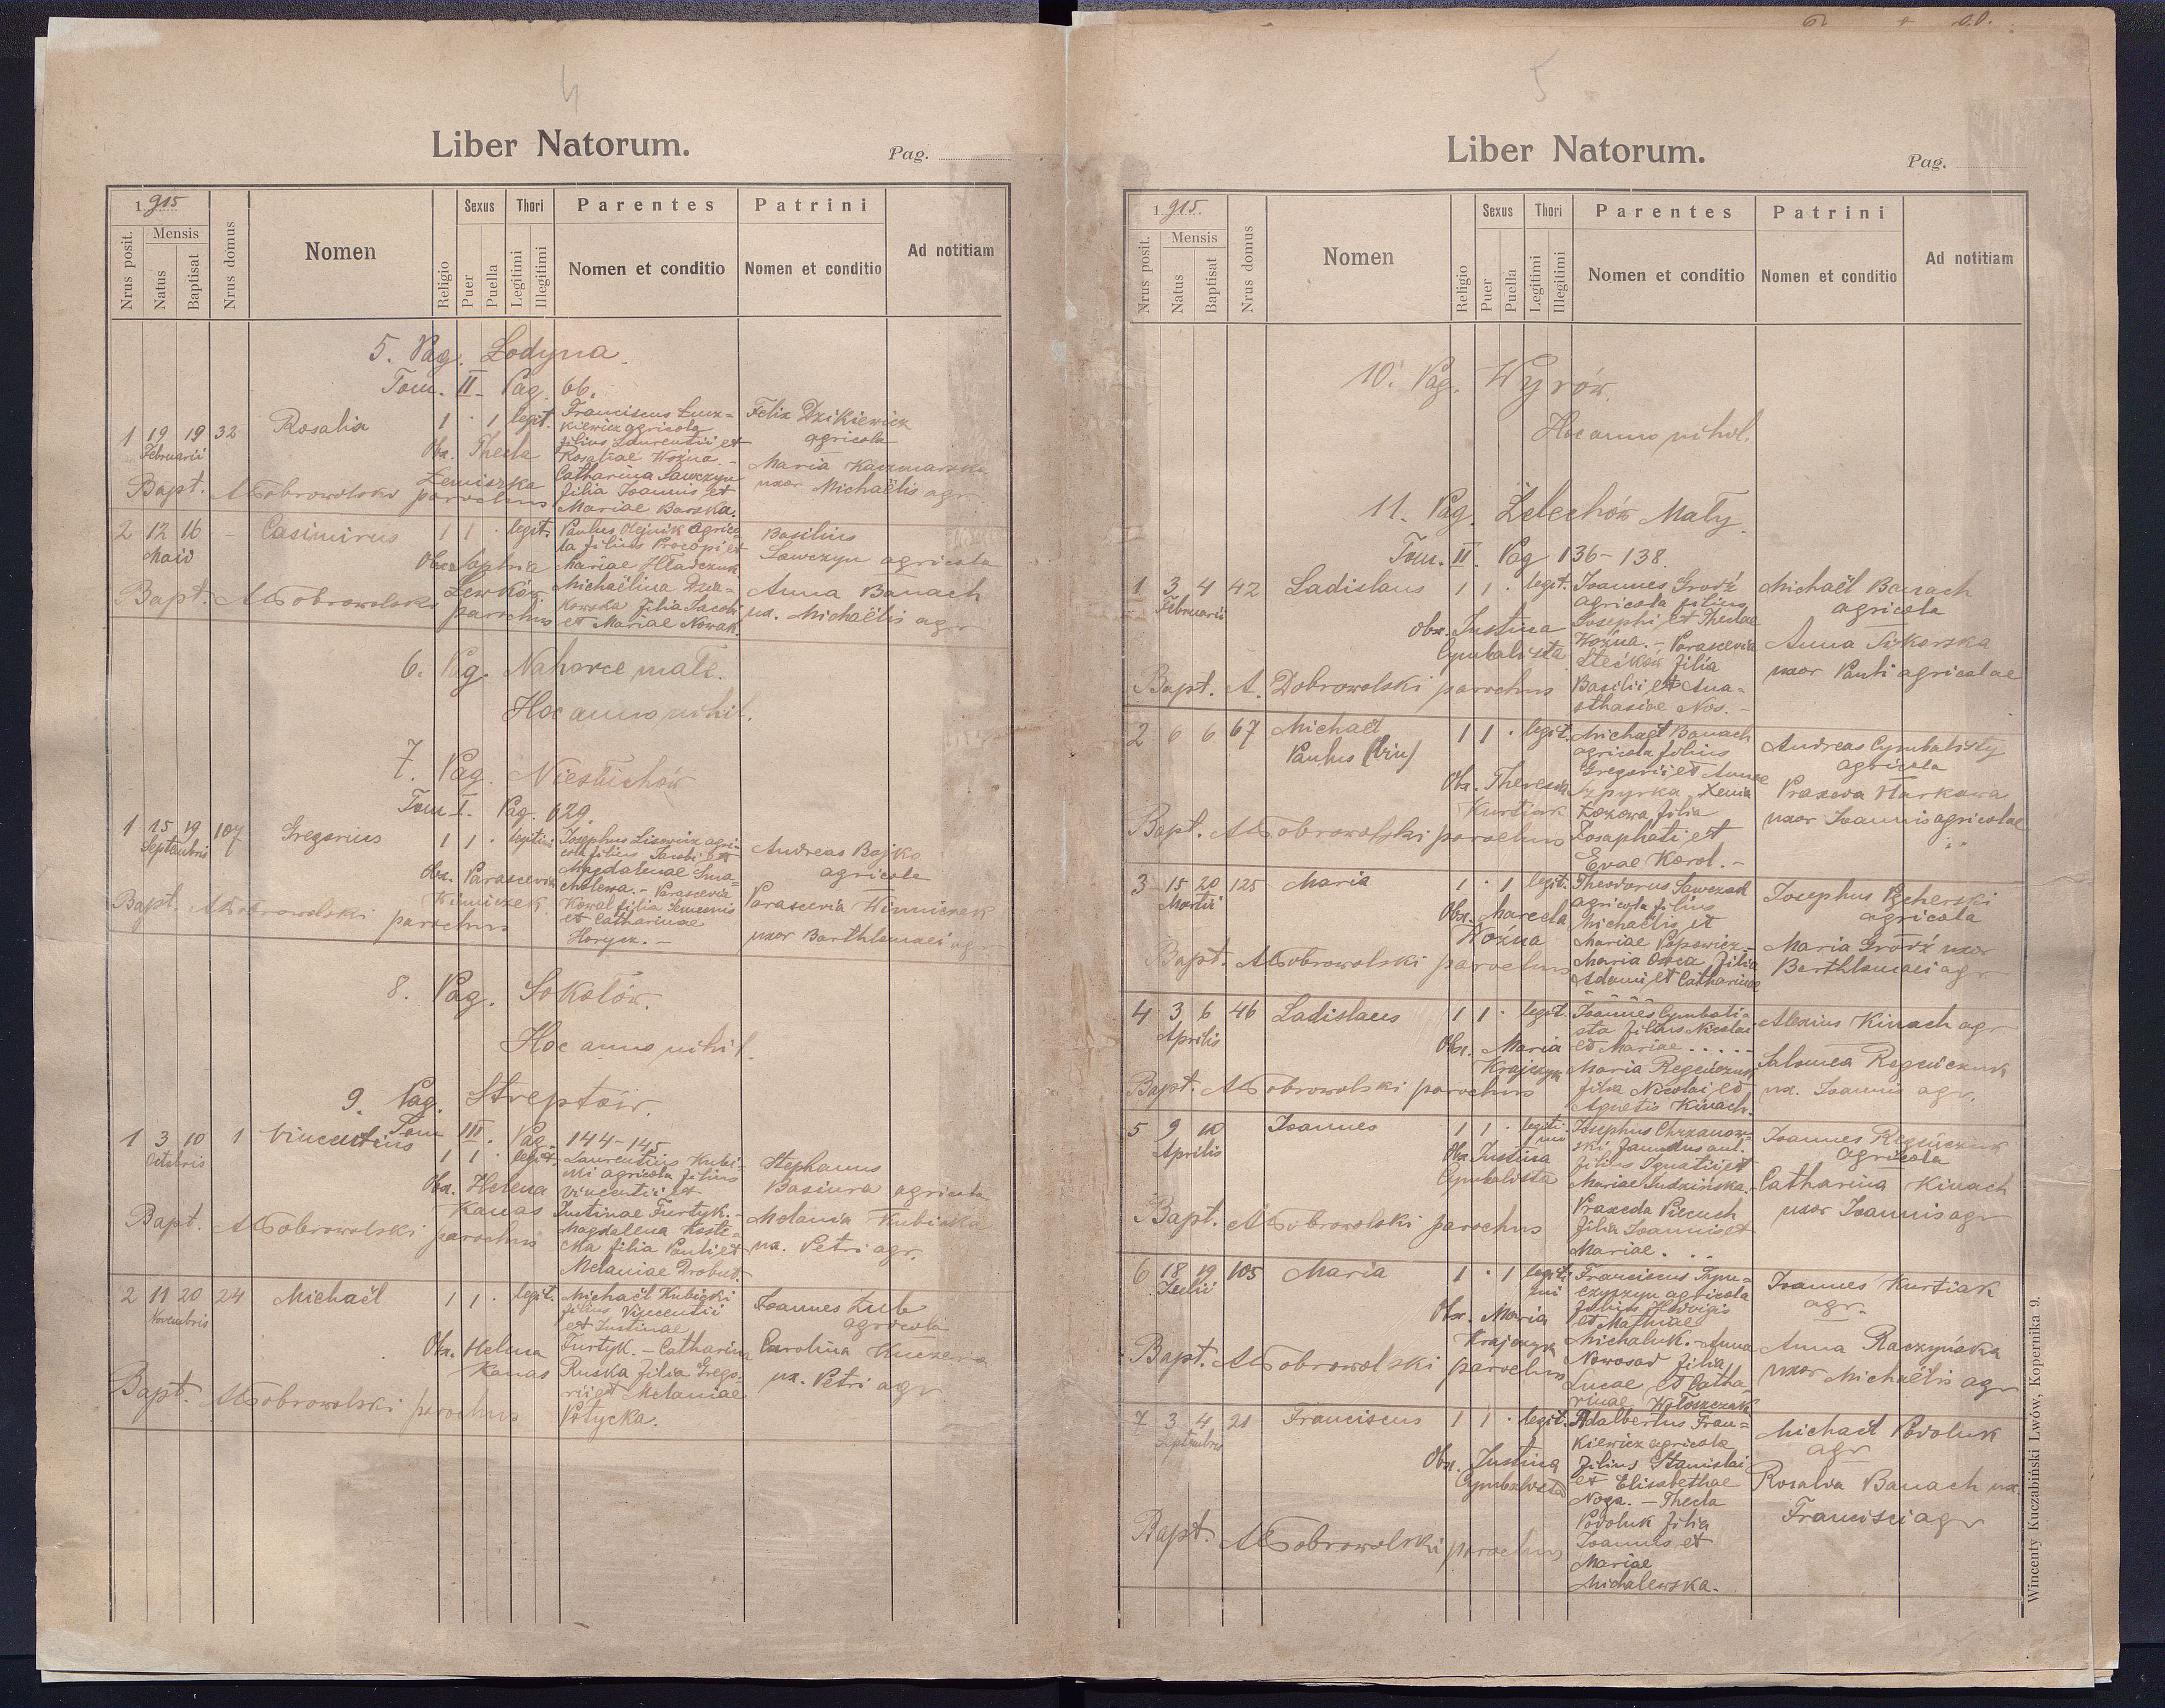 4
Liber Natorum.
Pag.
1 915
Nrus posit.
Mensis
Natus
Baptisat
Nrus domus
Nomen
Religio
Sexus
Puer
Puella
Thori
Legitimi
Illegitimi
Parentes
Nomen et conditio
Patrini
Nomen et conditio
Ad notitiam
5. Pag. Łodyna.
Tom. II. Pag. 66.
1 19 19 32 Rosalia 1 · 1 legit.
Februarii
Franciscus
kiewicz agricola
filius Laurentii et
Rosaliae Woźna. -
Catharina Sawczyn
filia Joannis et
Mariae Barska.
Felix Dzikiewicz
agricola
Maria Kaczmarska
uxor Michaëlis agr.
Obs. Thecla
Zemiszka
Bapt. A Dobrowolski parochus
2 12 16 - Casimirus 1 1 · legit.
Maii
Paulus Olejnik agrico
la filius Procopi et
Mariae
Michaëlina Dzia-
kowska filia Jacobi
et Mariae Nowak.
Basilius
Sawczyn agricola
Anna Banach
ux. Michaëlis agr
Obs. Sophia
Lewków
Bapt. A Dobrowolski parochus
6. Pag. Nahorce małe.
Hoc anno nihil.
7. Pag. Niestuchów
Tom I. Pag. 629.
1 15 19 107 Gregorius 1 1 · legitimi
Septembris
Josephus Lisowicz agri-
cola filius Jacobi et
Magdalenae Sma-
cholewa. - Parascevia
Kowal filia Semenis
et Catharinae
Horycz. -
Andreas Bojko
agricola
Parascevia Winniczek
uxor Barthlomaei agr
Obs. Parascevia
Winniczek
Bapt. A Dobrowolski parochus
8. Pag. Sokołów.
Hoc anno nihil.
9. Pag. Streptów.
Tom III. Pag. 144-145
1 3 10 1 Vincentius 1 1 · legit.
Octobris
Laurentius Kubi-
cki agricola filius
Vincentii et
Justinae Furtyk. -
Magdalena Koste-
cka filia Pauli et
Melaniae Drobut.
Stephanus
Basiura agricola
Melania Kubicka
ux. Petri agr.
Obs. Helena
Kanas
Bapt. A Dobrowolski parochus
2 11 20 24 Michaël 1 1 · legit.
Novembris
Michaël Kubicki
filius Vincentii
et Justinae
Furtyk. - Catharina
Ruska filia Grego-
rii et Melaniae
Potycka.
Joannes Zub
agricola
Carolina Kuczera
ux. Petri agr
Obs. Helena
Kanas
Bapt. A Dobrowolski parochus
5
Liber Natorum.
Pag.
1 915.
Nrus posit.
Mensis
Natus
Baptisat
Nrus domus
Nomen
Religio
Sexus
Puer
Puella
Thori
Legitimi
Illegitimi
Parentes
Nomen et conditio
Patrini
Nomen et conditio
Ad notitiam
10. Pag. Wyrów.
Hoc anno nihil.
11. Pag. Żelechów Mały.
Tom. II. Pag 136-138.
1 3 4 42 Ladislaus 1 1 · legit.
Februarii
Joannes Grodź
agricola filius
Josephi et Theclae
Woźna. - Parascevia
Stećków filia
Basilii et Ana-
sthasiae Nos. -
Michaël Banach
agricola
Anna Sikorska
uxor Pauli agricolae
Obs. Justina
Cymbalista
Bapt. A. Dobrowolski parochus
2 6 6 67 Michaël 1 1 · legit.
Paulus (bin)
Michaël Banach
agricola filius
Gregorii et Annae
Szpyrka. Xenia
Kozowa filia
Josaphati et
Evae Karol. -
Andreas Cymbalisty
agricola
Praxeda Harkawa
uxor Joannis agricolae
Obs. Theresia
Kurtiak
Bapt. A Dobrowolski parochus
3 15 20 125 Maria 1 · 1 legit.
Martii
Theodorus Sawczak
agricola filius
Michaëlis et
Mariae Popowicz -
Maria Owca filia
Adami et Catharinae
Josephus Pcherski
agricola
Maria Grodź uxor
Barthlomaei agr
Obs. Marcela
Woźna
Bapt. A Dobrowolski parochus
4 3 6 46 Ladislaus 1 1 · legit.
Aprilis
Joannes Cymbali-
sta filius Nicolai
et Mariae .....
Maria Regeńczuk
filia Nicolai et
Agnetis Kinach.
Alexius Kinach agr
Salomea Regenczuk
ux. Joannis agr.
Obs. Maria
Krajczyn
Bapt. A Dobrowolski parochus
5 9 10 Joannes 1 1 · legiti
mi
Aprilis
Josephus Chrzanow-
ski famulus aul.
filius Ignatii et
Mariae Dudzińska. -
Praxeda Piecuch
filia Joannis et
Mariae. ..
Joannes Regeńczuk
agricola
Catharina Kinach
uxor Joannis agr
Obs Justina
Cymbalista
Bapt. A Dobrowolski parochus
6 18 19 105 Maria 1 · 1 legiti
mi
Julii
Franciscus
agricola
filius Hedvigis
et Mathiae
Michaluk. - Anna
Nowosad filia
Lucae et Catha-
rinae Wołoszczak
Joannes Kurtiak
agr.
Anna Raczyńska
uxor Michaëlis agr
Obs. Maria
Krajczyn
Bapt. A Dobrowolski parochus
7 3 4 21 Franciscus 1 1 · legit.
Septembris
Adalbertus Fran-
kiewicz agricola
filius Stanislai
et Elisabethae
Noga. - Thecla
Podoluk filia
Joannis et
Mariae
Michalewska.
Michaël Podoluk
agr
Rosalia Banach ux.
Francisci agr
Obs. Justina
Cymbalista
Bapt. A Dobrowolski parochus
Wincenty Kuczabiński Lwów, Kopernika 9.